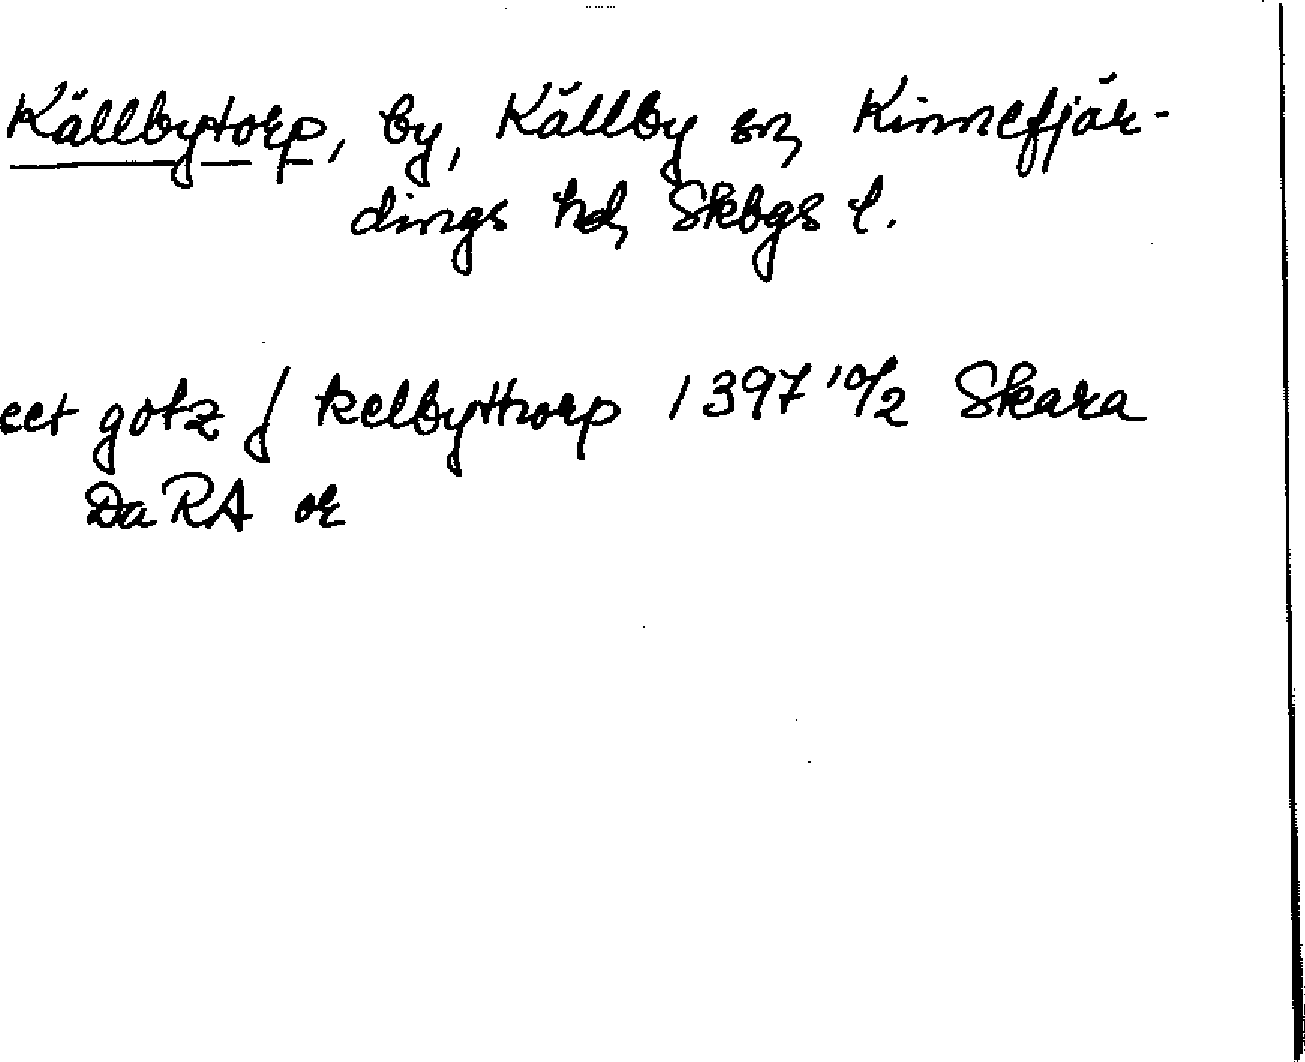 Källbytorp, by, Källby sn, Kinnefjär-
dings hd, Skbgs l.
eet gotz j kelbyttorp 1397 10/2 Skara
DaRA or